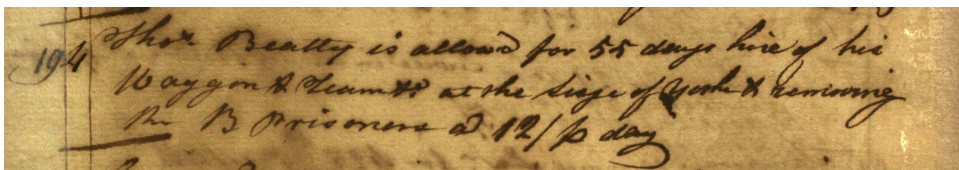 194 Thos Beatty is allowd for 55 days hire of his
Waggon & Team &c at the Siege of York & removing
the B Prisoners @ 12/ p day